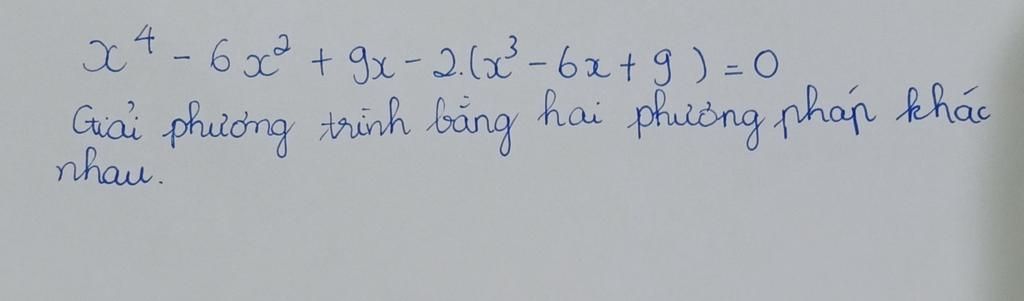 x⁴ - 6x² + 9x - 2.(x³ - 6x + 9) = 0
Giải phương trình bằng hai phương pháp khác
nhau.